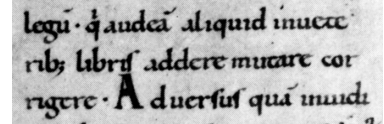 legū· q̇ audeā aliquid inuete
rib; libris addere mutare cor
rigere· Aduersus quā inuidi